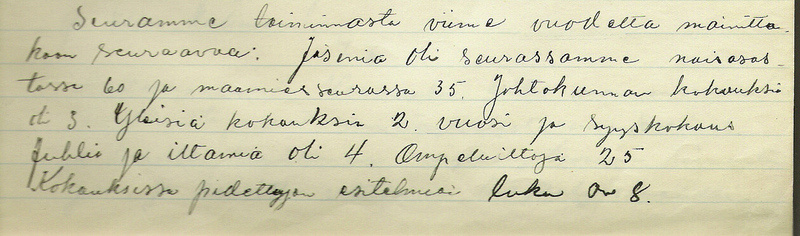 Seuramme toiminnasta viime vuodelta mainitta-
koon seuraavaa: Jäseniä oli seurassamme naisosas-
tossa 60 ja maamiesseurassa 35. Johtokunnan kokouksia
oli 3. Yleisiä kokouksia 2. vuosi ja syyskokous
Juhlia ja iltamia oli 4. Ompeluiltoja 25
Kokouksissa pidettyjen esitelmien luku on 8.